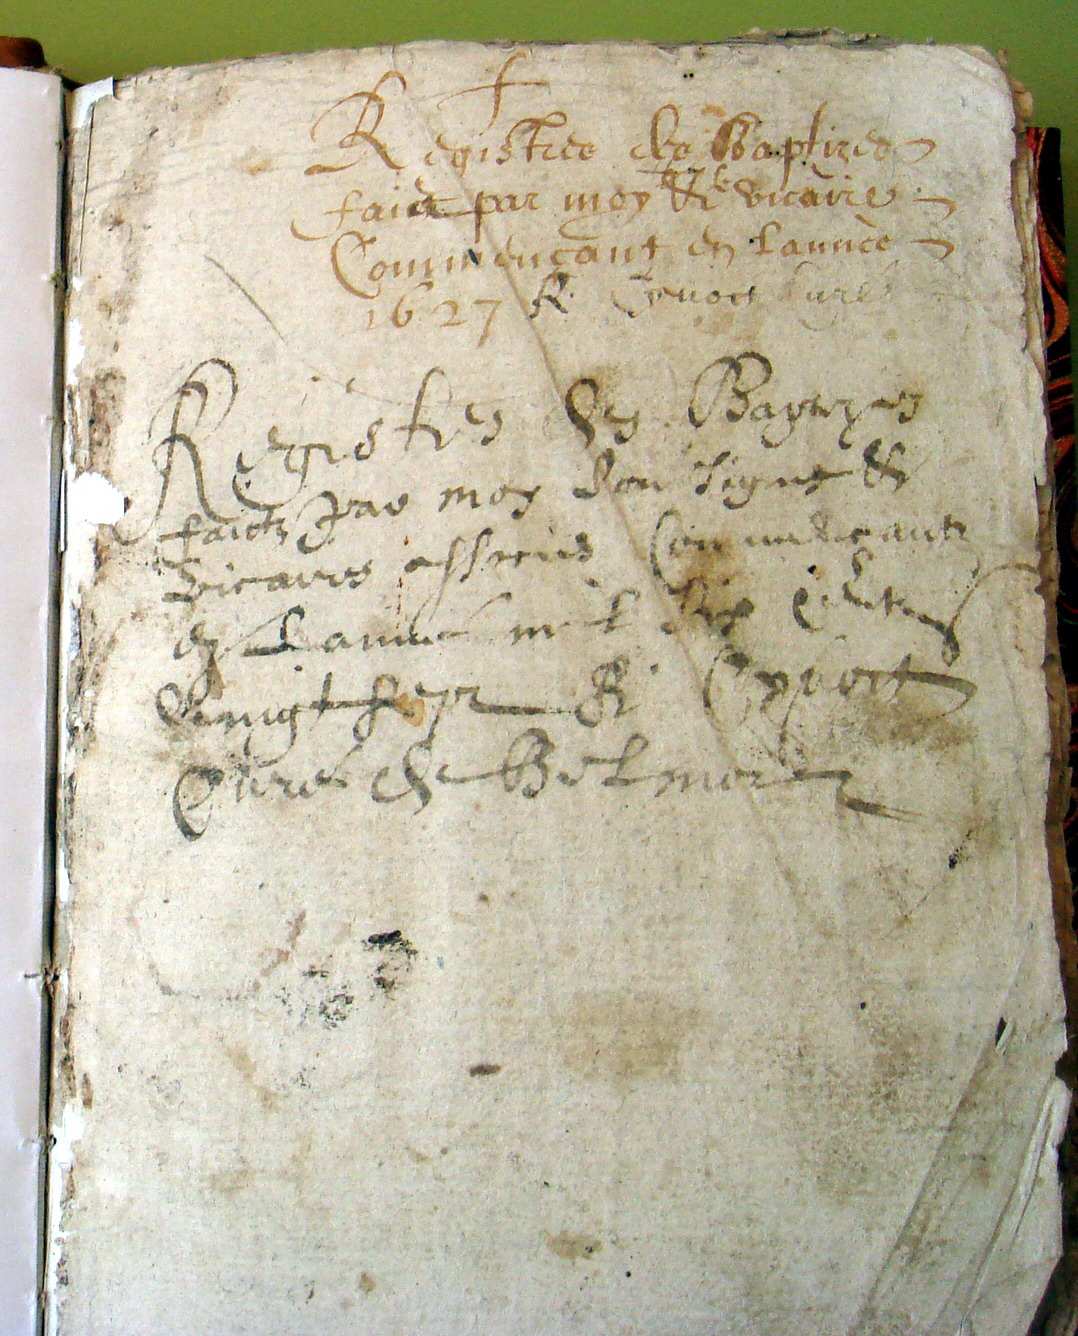 Registres des Baptizes
faict par moy & vicaire
Commencant en lannee
1627 &
Registres des Baptizes
faictz par moy soubsigne &
vicaires Commencant
en Lannee mil six Centz
vingt sept &
Curé de Belmont